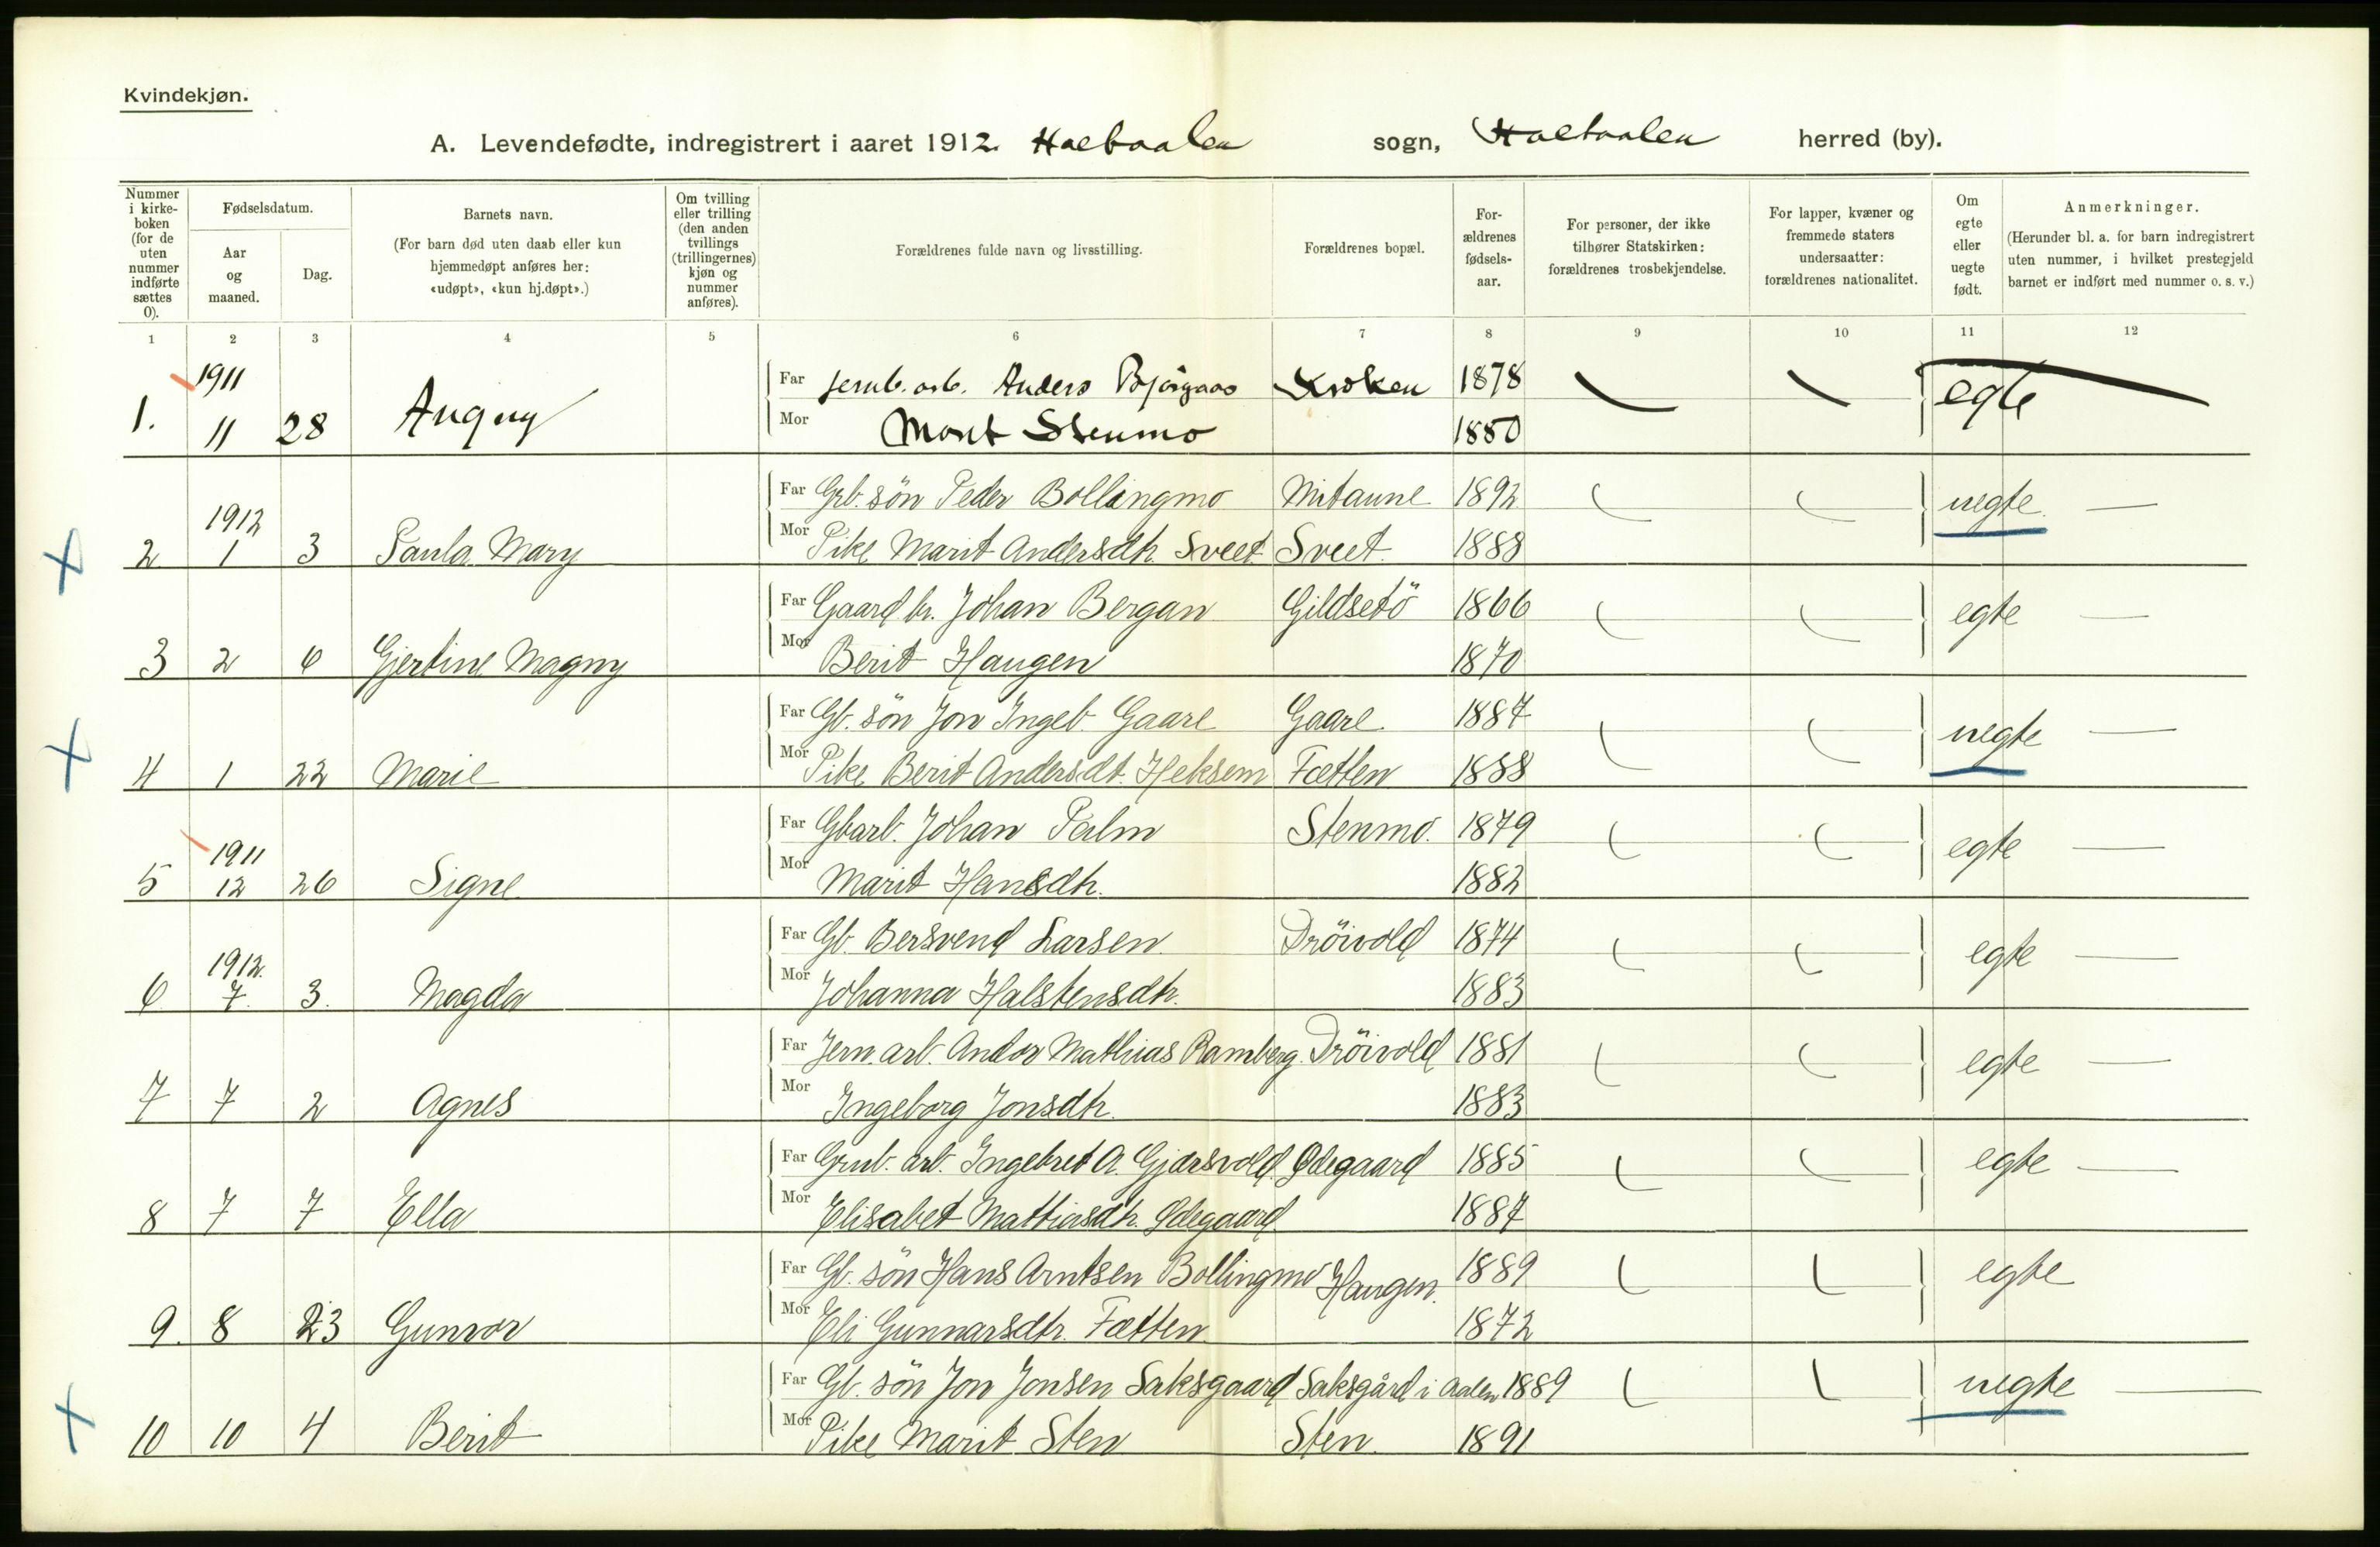 Kvindekjøn.
A. Levendefødte, indregistrert i aaret 1912. Holtaalen sogn, Holtaalen herred (by).
Nummer i kirkeboken (for de uten nummer indførte sættes 0).
Fødselsdatum.
Aar og maaned.
Dag.
Barnets navn.
(For barn død uten daab eller kun hjemmedøpt anføres her: «udøpt», «kun hj.døpt».)
Om tvilling eller trilling (den anden tvillings (trillingernes) kjøn og nummer anføres).
Forældrenes fulde navn og livsstilling.
Forældrenes bopæl.
Forældrenes fødselsaar.
For personer, der ikke tilhører Statskirken: forældrenes trosbekjendelse.
For lapper, kvæner og fremmede staters undersaatter: forældrenes nationalitet.
Om egte eller uegte født.
Anmerkninger.
(Herunder bl. a. for barn indregistrert uten nummer, i hvilket prestegjeld barnet er indført med nummer o. s. v.)
1 2 3 4 5 6 7 8 9 10 11 12
1911
Far Jernb. arb. Anders Bjørgaas Kroken 1878 egte
1. 11 28 Augny
Mor Marit Stenmo 1880
Far Grb. søn Peder Bollingmo Mitaune 1892 uegte —
1912
2 1 3 Paula Mary
Mor Pike Marit Andersdtr. Sveet Sveet 1888
Far Gaardbr. Johan Bergan Gildsetö 1866 egte —
3 2 6 Gjertine Magny
Mor Berit Haugen 1870
Far Gb. søn Jon Ingeb. Gaare Gaare 1887 uegte —
4 1 22 Marie
Mor Pike Berit Andersdt. Heksem Fætten 1888
Far Gbarb. Johan Palm Stenmo. 1879 egte —
1911
5 12 26 Signe
Mor Marit Hansdtr. 1882
Far Gb. Bersvend Larsen Dröivold 1874 egte —
1912.
6 7. 3. Magda
Mor Johanna Halstensdtr. 1883
Far Jern. arb. Andor Mathias Ramberg Dröivold 1881 egte —
7 7 2 Agnes
Mor Ingeborg Jonsdtr. 1883
Far Grub. arb. Ingebret A. Gjærsvold Ødegaard 1885 egte —
8 7 7 Ella
Mor Elisabet Mathiasdtr. Ødegaard 1887
Far Gb. søn Hans Arntsen Bollingmo Haugen. 1889 egte
9. 8 23 Gunvor
Mor Eli Gunnarsdtr. Fætten 1872
Far Gb. søn Jon Jonsen Saksgaard Saksgård i Aalen 1889 uegte —
10 10 4 Berit
Mor Pike Marit Sten Sten 1891